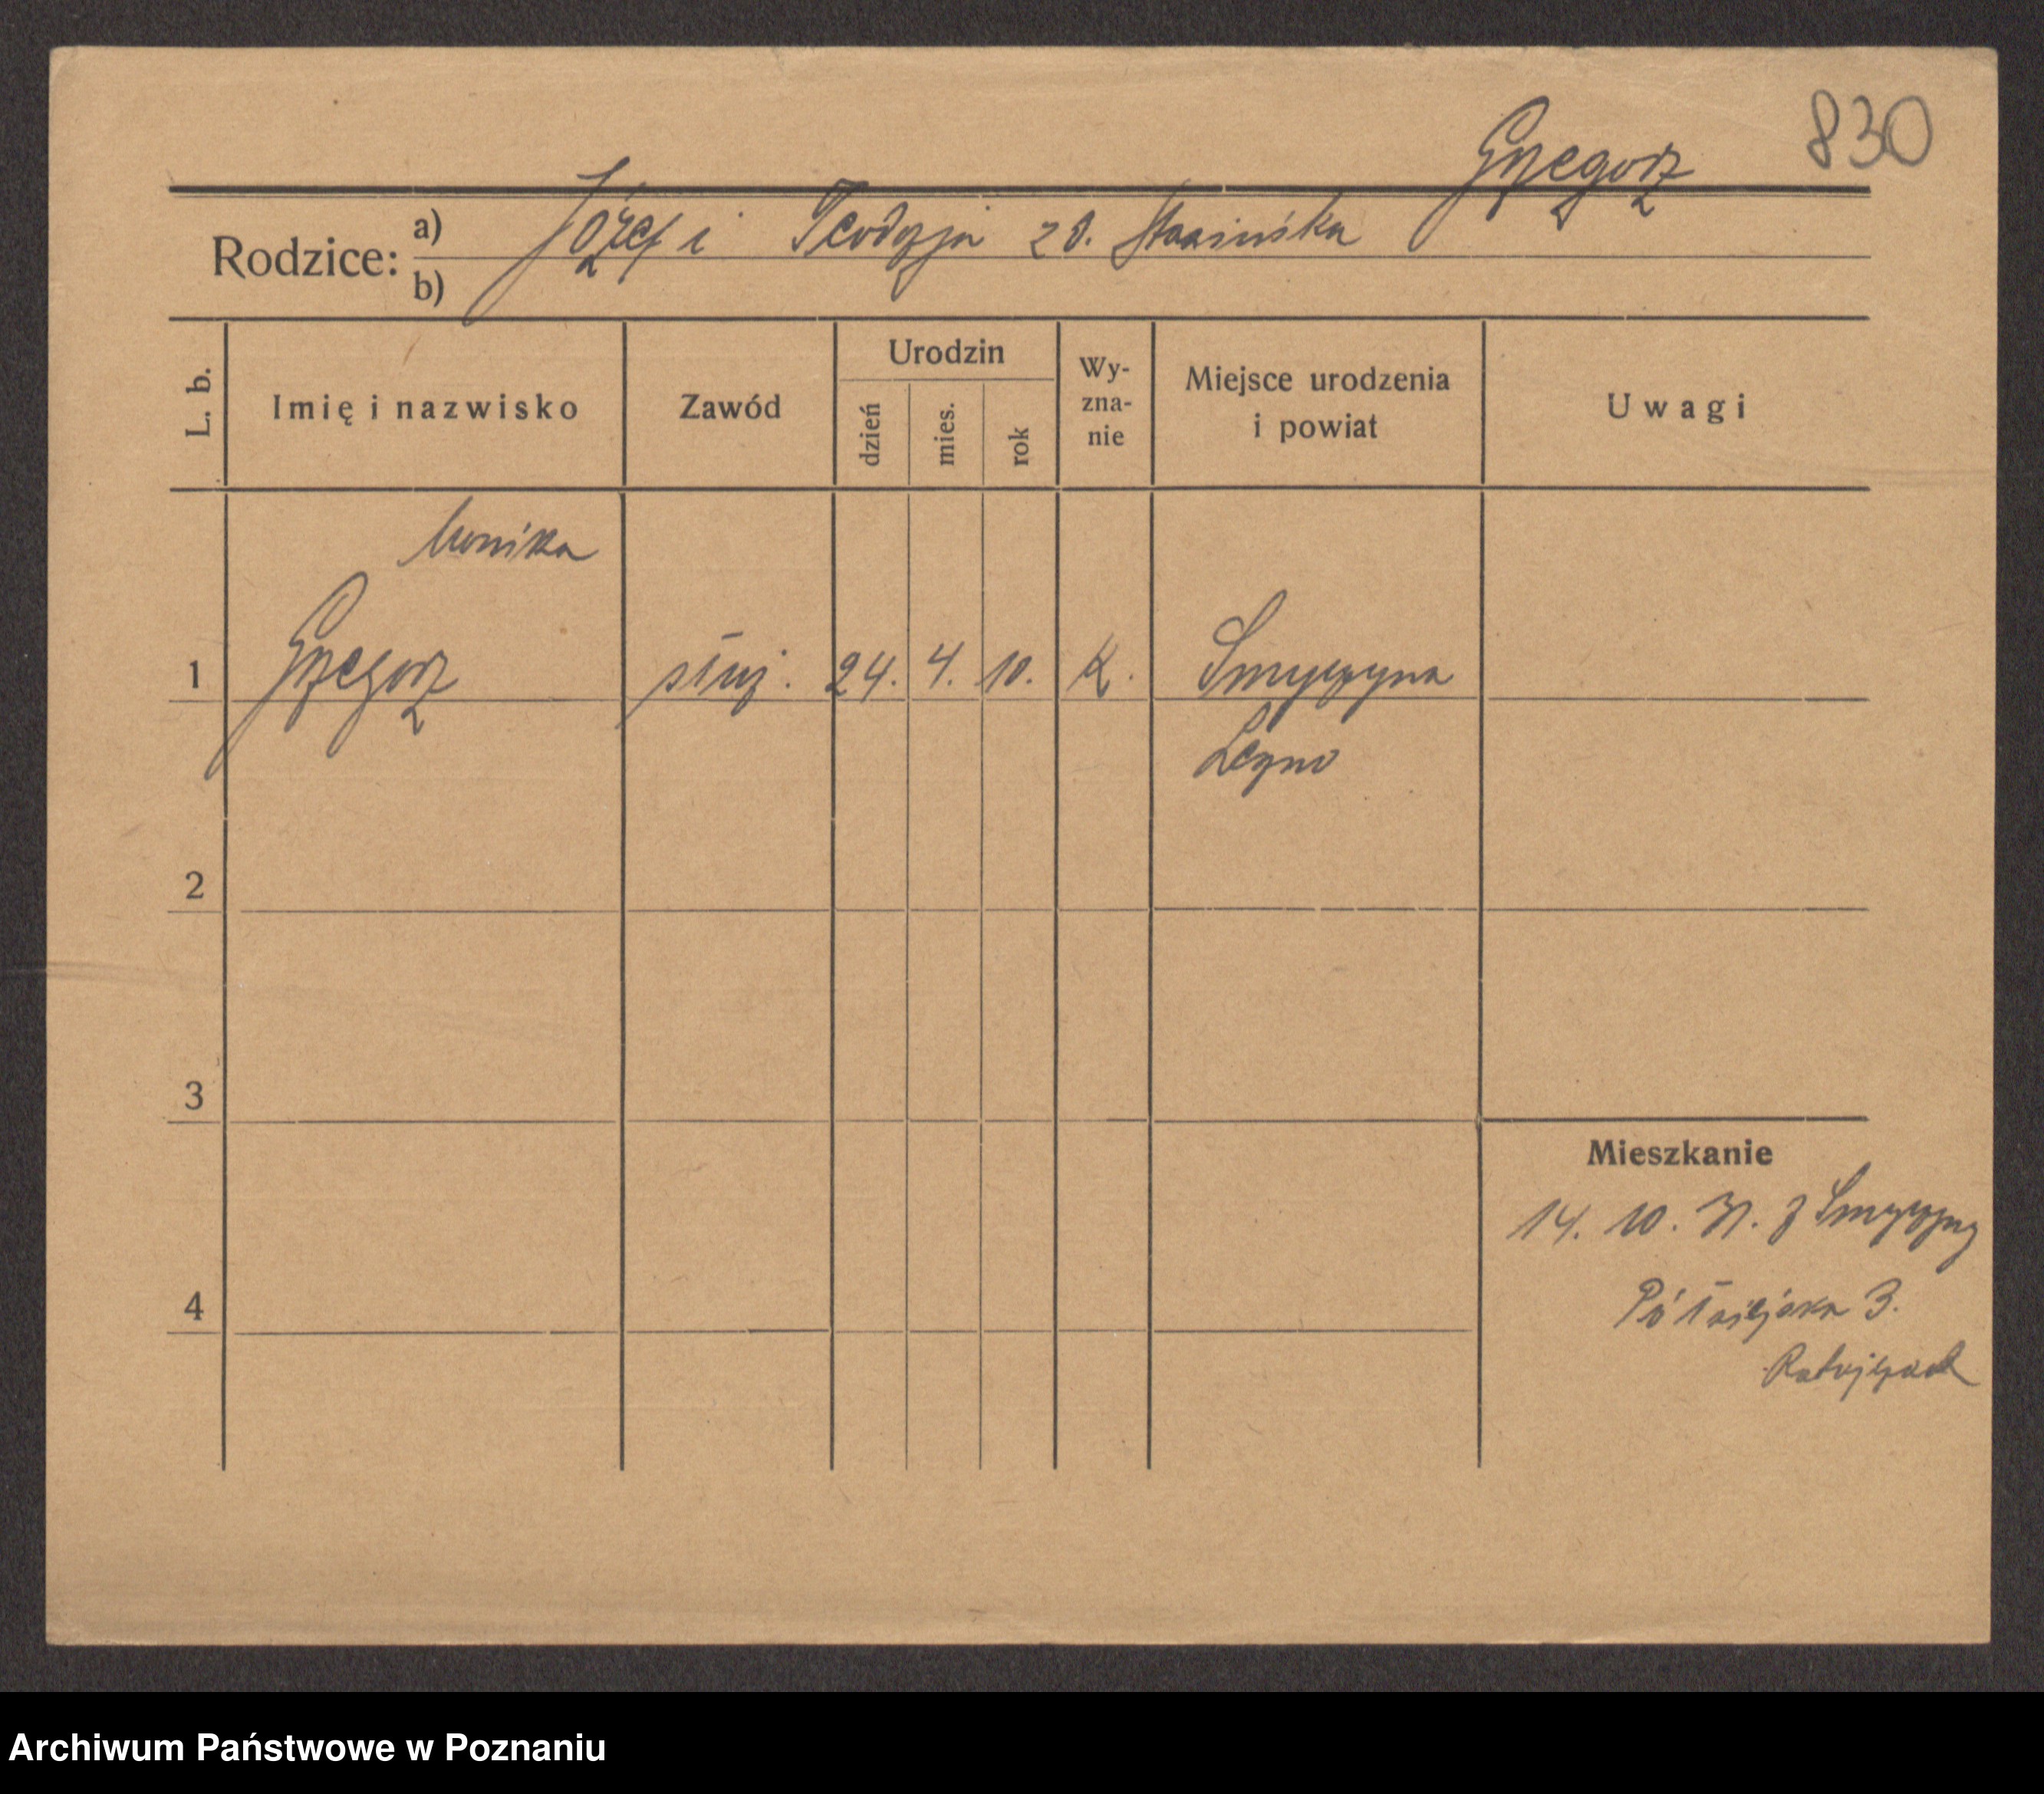 830
Grzegorz
Rodzice: a) Józef i Teodozja zd. Stasińska
b)
L. b.
Imię i nazwisko
Zawód
Urodzin
dzień
mies.
rok
Wy-
zna-
nie
Miejsce urodzenia
i powiat
Uwagi
Monika
1 Grzegorz służ. 24. 4. 10. K. Smyczyna
Leszno
2
3
Mieszkanie
14. 10. 31. z Smyczyny
3.
Ratajczak
4
Archiwum Państwowe w Poznaniu